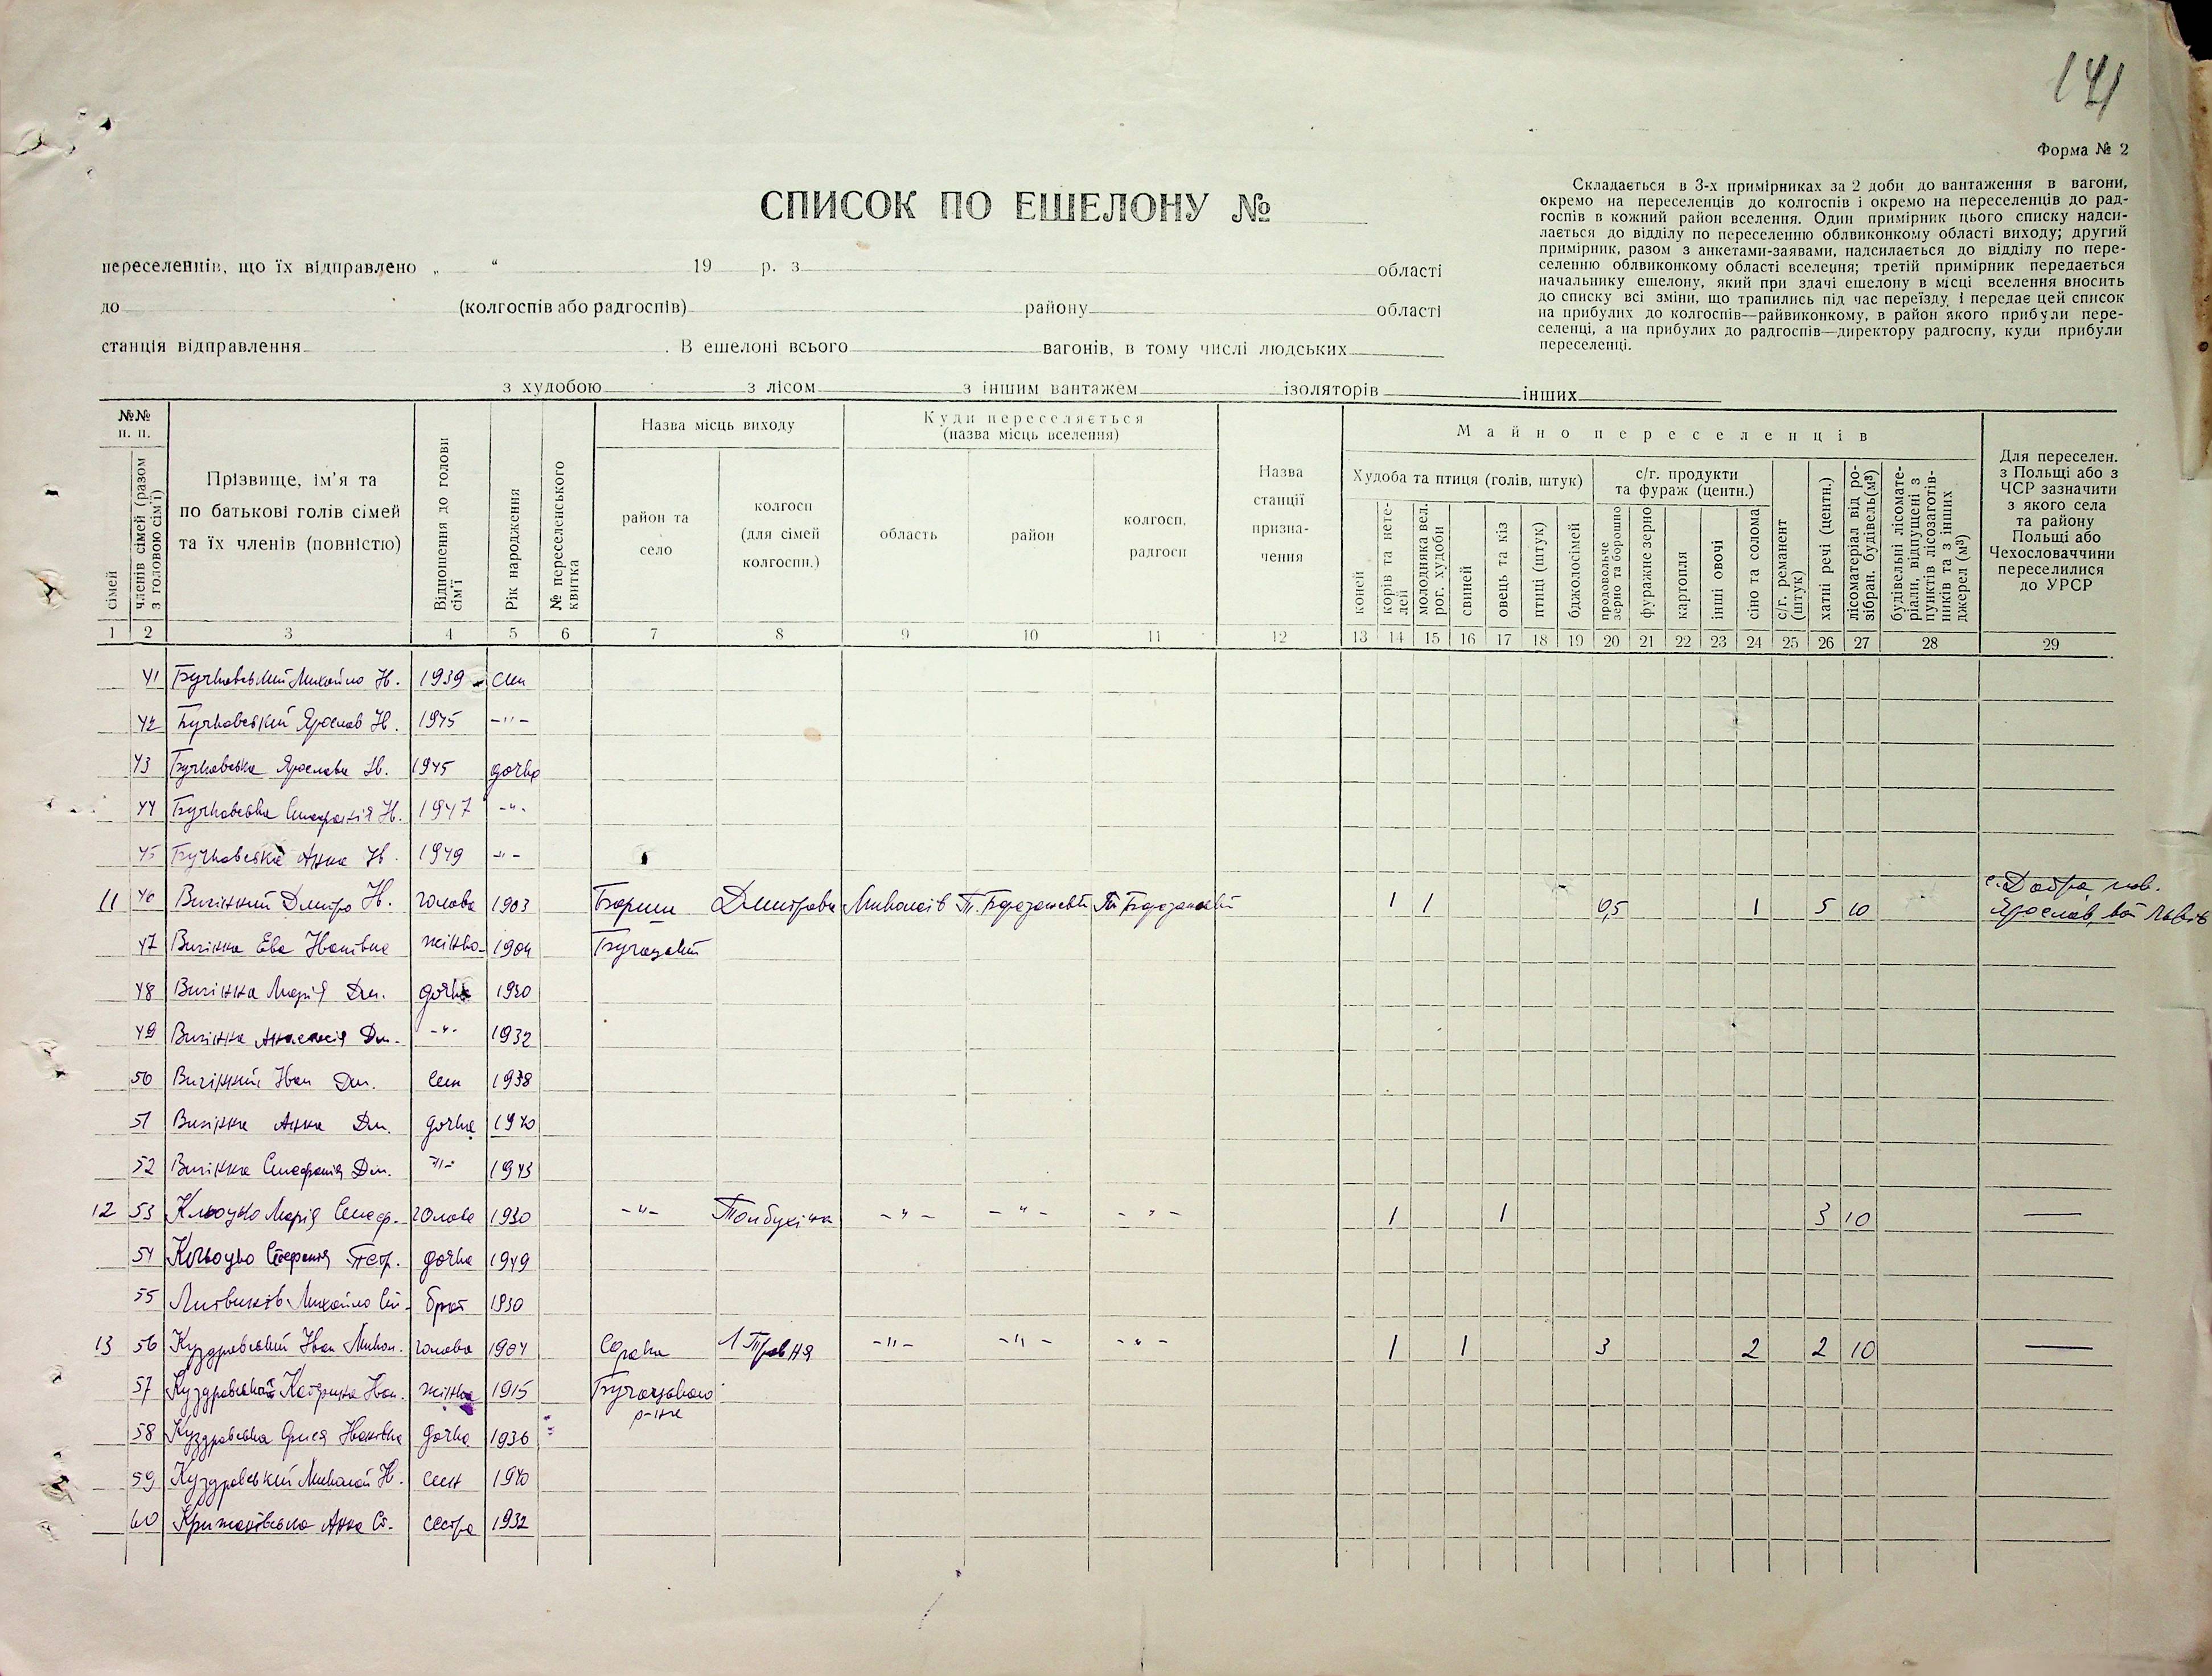 141
Форма № 2
СПИСОК ПО ЕШЕЛОНУ №
Складається в 3-х примірниках за 2 доби до вантаження в вагони,
окремо на переселенців до колгоспів і окремо на переселенців до рад-
госпів в кожний район вселення. Один примірник цього списку надси-
лається до відділу по переселенню облвиконкому області виходу; другий
примірник, разом з анкетами-заявами, надсилається до відділу по пере-
селенню облвиконкому області вселення; третій примірник передається
начальнику ешелону, який при здачі ешелону в місці вселення вносить
до списку всі зміни, що трапились під час переїзду, і передає цей список
на прибулих до колгоспів—райвиконкому, в район якого прибули пере-
селенці, а на прибулих до радгоспів—директору радгоспу, куди прибули
переселенці.
переселенців, що їх відправлено „ “ 19 р. з області
до (колгоспів або радгоспів) району області
станція відправлення . В ешелоні всього вагонів, в тому числі людських
з худобою з лісом з іншим вантажем ізоляторів інших
№№ п. п.
сімей
членів сімей (разом з головою сім'ї)
Прізвище, ім'я та
по батькові голів сімей
та їх членів (повністю)
Відношення до голови сім'ї
Рік народження
№ переселенського квитка
Назва місць виходу
район та село
колгосп (для сімей колгоспн.)
Куди переселяється
(назва місць вселення)
область
район
колгосп, радгосп
Назва станції призна-чення
Майно переселенців
Худоба та птиця (голів, штук)
коней
корів та нете-лей
молодняка вел. рог. худоби
свиней
овець та кіз
птиці (штук)
бджолосімей
с/г. продукти та фураж (центн.)
продовольче зерно та борошно
фуражне зерно
картопля
інші овочі
сіно та солома
с/г. реманент (штук)
хатні речі (центн.)
лісоматеріал від ро-зібран. будівель (м³)
будівельні лісомате-ріали, відпущені з пунктів лісозаготів-ників та з інших джерел (м³)
Для переселен.
з Польщі або з
ЧСР зазначити
з якого села
та району
Польщі або
Чехословаччини
переселилися
до УРСР
1 2 3 4 5 6 7 8 9 10 11 12 13 14 15 16 17 18 19 20 21 22 23 24 25 26 27 28 29
41 Бучковський Михайло Н. 1939 син
42 Бучковський Ярослав Н. 1945 -"-
43 Бучковська Ярослава Н. 1945 дочка
44 Бучковська Стефанія Н. 1947 -"-
45 Бучковська Анна Н. 1949 -"-
11 46 Дмитро Н. голова 1903 Дмитрова Миколаїв 1 1 0,5 1 5 10 с. Добра пов.
47 Ева Іванівна жінка 1904 Ярослав,
48 Марія Дм. дочка 1930
49 Анастасія Дм. -"- 1932
50 Іван Дм. син 1938
51 Анна Дм. дочка 1940
52 Стефанія Дм. -"- 1943
12 53 Кльоцко Марія Стеф. голова 1930 -"- Толбухіна -"- -"- -"- 1 1 3 10 —
54 Кльоцко Стефанія Петр. дочка 1949
55 Михайло брат 1930
13 56 Куздровський Іван Микол. голова 1904 Сорока 1 Травня -"- -"- -"- 1 1 3 2 2 10 —
57 Катерина Іван. жінка 1915 Бучацького
р-на
58 Куздровська Орися Іванівна дочка 1936
59 Куздровський Миколай Н. син 1940
60 Анна Ст. сестра 1932